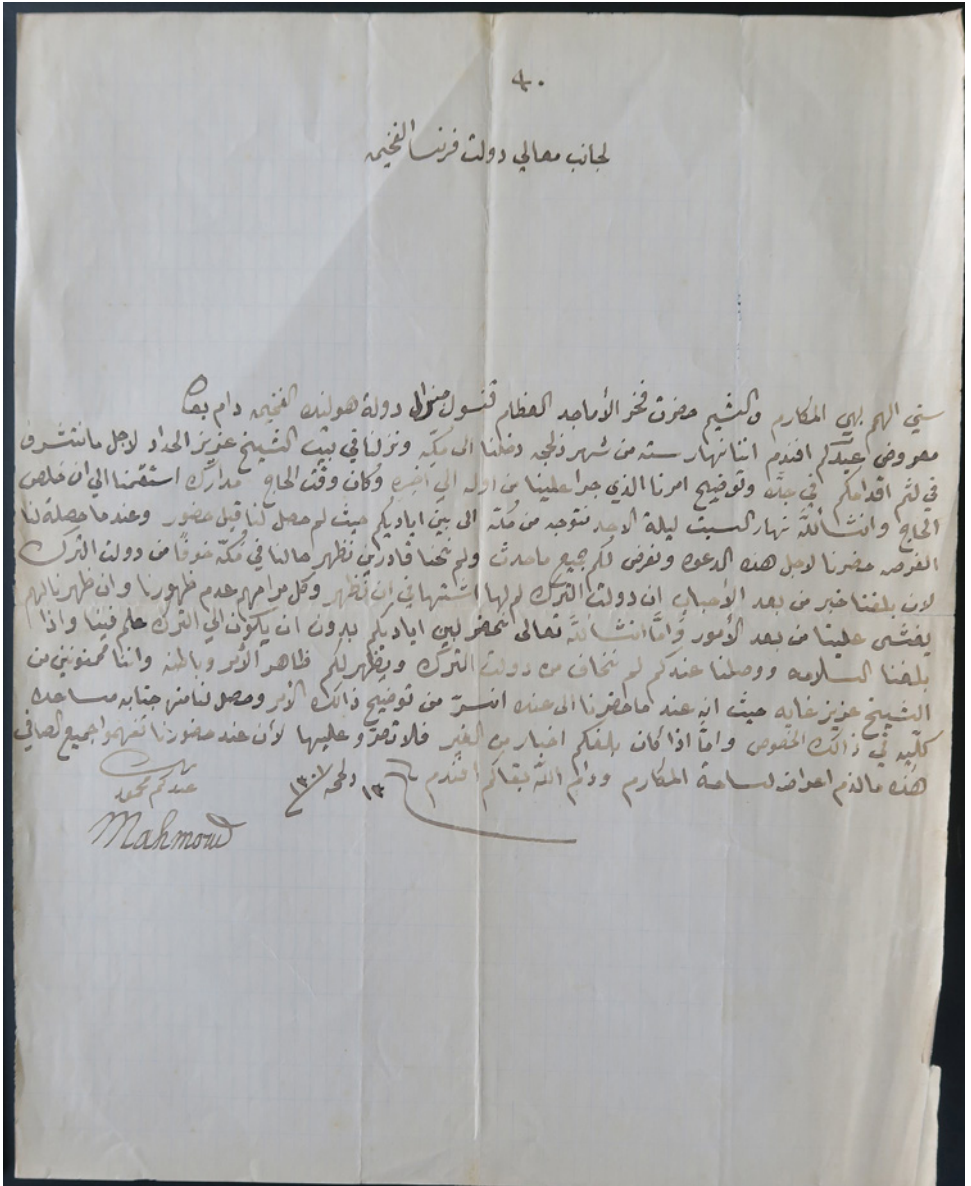 لجانب معالي دولت فرنسا الفخيمه
سني الهمم بهي المكارم والشيم حضرت فخر الأماجد العظام قنسول جنرال دولة هولنده الفخيمه دام بقاه
معروض اعبدكم افندم اننا نهار سته من شهر ذلحجه دخلنا الى مكّه ونزلنا في بيت الشيخ عزيز الحداد لاجل مانتشرف
في لثم اقدامكم في جدّه وتوضيح امرنا الذي جرا علينا من اوله الى اخره وكان وقت الحاج مدارك استقمنا الي ان خلص
الحاج وانشاءلله نهار السبت ليلة الاحد نتوجه من مكّه الى بين اياديكم حيث لم حصل لنا قبل حضور وعند ما حصلة لنا
الفرصه حضرنا لاجل هذه الدعوه ونعرض لكم جميع ماحدث ولم نحنا قادرين نظهر حالنا في مكّه خوفًا من دولت الترك
لان بلغنا خبر من بعد الأحباب ان دولت الترك لم لها اشتها في ان نظهر وكل مرامهم عدم ظهورنا وان ظهرنا لهم
يخشى علينا من بعد الأمور وامّا انشاءلله تعالى نحضر لبين اياديكم بدون ان يكون الي الترك علم فينا واذا
بلغنا السلامه ووصلنا عندكم لم نخاف من دولت الترك ويظهر لكم ظاهر الأمر وباطنه واننا ممنونين من
الشيخ عزيز غايه حيث انه عند ما حضرنا الى عنده انسرّ من توضيح ذالك الامر وحصل لنا من جنابه مساعده
كلّيه في ذالك الخصوص وامّا اذا كان بلغكم اخبار من الغير فلا تصرّو عليها لأن عند حضورنا تفهموا جميع الصافي
هذه مالذم اعراضه لساحة المكارم ودام الله بقاكم افندم ١٣ ذلحجه ١٣٠١
عبدكم محمود
Mahmoud